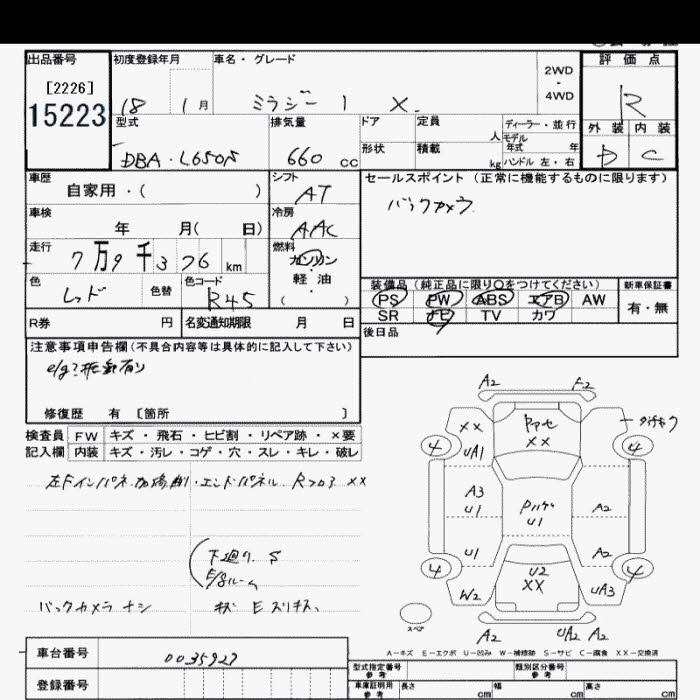 出品番号
[2226]
15223
初度登録年月
18 1月
車名・グレード
ミラジーノ X
2WD
・
4WD
評価点
R
外装 内装
D C
型式
DBA-L650S
排気量
660 cc
ドア
形状
定員
人
積載
kg
ディーラー・並行
モデル
年式 年
ハンドル 左・右
車歴
自家用・( )
シフト
AT
セールスポイント (正常に機能するものに限ります)
バックカメラ
車検
年 月( 日)
冷房
AAC
走行
7万9千376 km
燃料
ガソリン
・
軽油
( )
色
レッド
色替
色コード
R45
装備品 (純正品に限り○をつけてください)
PS PW ABS エアB AW
SR ナビ TV カワ
新車保証書
有・無
R券 円
名変通知期限 月 日
後日品
注意事項申告欄 (不具合内容等は具体的に記入して下さい)
修復歴 有 [箇所 ]
検査員 FW キズ・飛石・ヒビ割・リペア跡・×要
記入欄 内装 キズ・汚レ・コゲ・穴・スレ・キレ・破レ
エンドパネル
下廻り S
E/gルーム
バックカメラ ナシ
A2 F2
XX XX
UA1
4 4
A3
U1
U1
A2
U1 A2
U2
XX
4 4
W2 UA3
スペア
A2 UA2 A2
A-キズ E-エクボ U-凹み W-補修跡 S-サビ C-腐食 XX-交換済
車台番号
0035927
登録番号
型式指定番号
参考
類別区分番号
参考
車庫証明用
参考
長さ cm
幅 cm
高さ cm